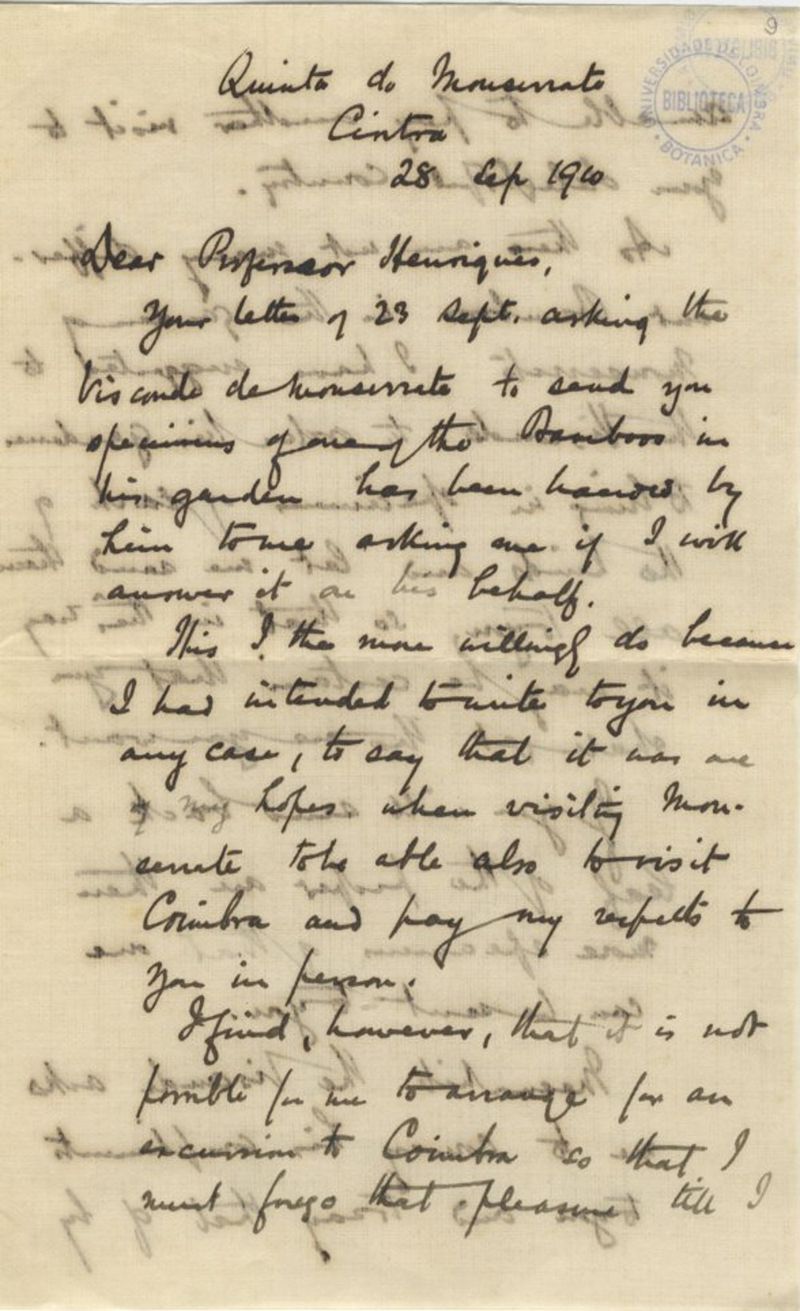 9
UNIVERSIDADE DE COIMBRA
BIBLIOTECA
BOTANICA
Quinta do Monserrate
Cintra
28 Sep 1910
Dear Professor Henriques,
Your letter of 23 Sept. asking the
Visconde de Monserrate to send you
specimens of one of the Bamboos in
his garden has been handed by
him to me asking me if I will
answer it on his behalf.
This I the more willingly do because
I had intended to write to you in
any case, to say that it was one
of my hopes when visiting Mon-
serrate to be able also to visit
Coimbra and pay my respects to
you in person.
I find, however, that it is not
possible for me to arrange for an
excursion to Coimbra so that I
must forego that pleasure till I